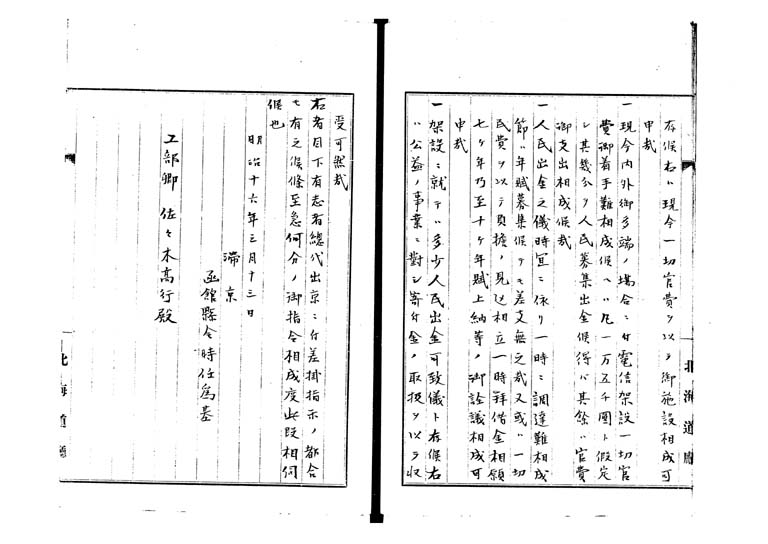 存候右ハ現今一切官費ヲ以テ御施設相成可
申哉
一現今内外御多端ノ場合ニ付電信架設一切官
費御着手難相成候ヘハ凡一万五千圓ト假定
シ其幾分ヲ人民募集出金候得ハ其餘ハ官費
御支出相成候哉
一人民出金之儀時宜ニ依リ一時ニ調達難相成
節ハ年賦募集候テモ差支無之哉又或ハ一切
民費ヲ以テ負擔ノ見込相立一時拜借金相願
七ケ年乃至十ケ年賦上納等ノ御詮議相成可
申哉
一架設ニ就テハ多少人民出金可致儀ト存候右
ハ公益ノ事業ニ對シ寄付金ノ取扱ヲ以テ収
北海道廳
受可然哉
右者目下有志者總代出京ニ付差掛指示ノ都合
モ有之候條至急何分ノ御指令相成度此段相伺
候也
明治十六年三月十三日
滯京
函館縣令時任爲基
工部卿 佐々木高行殿
北海道廳